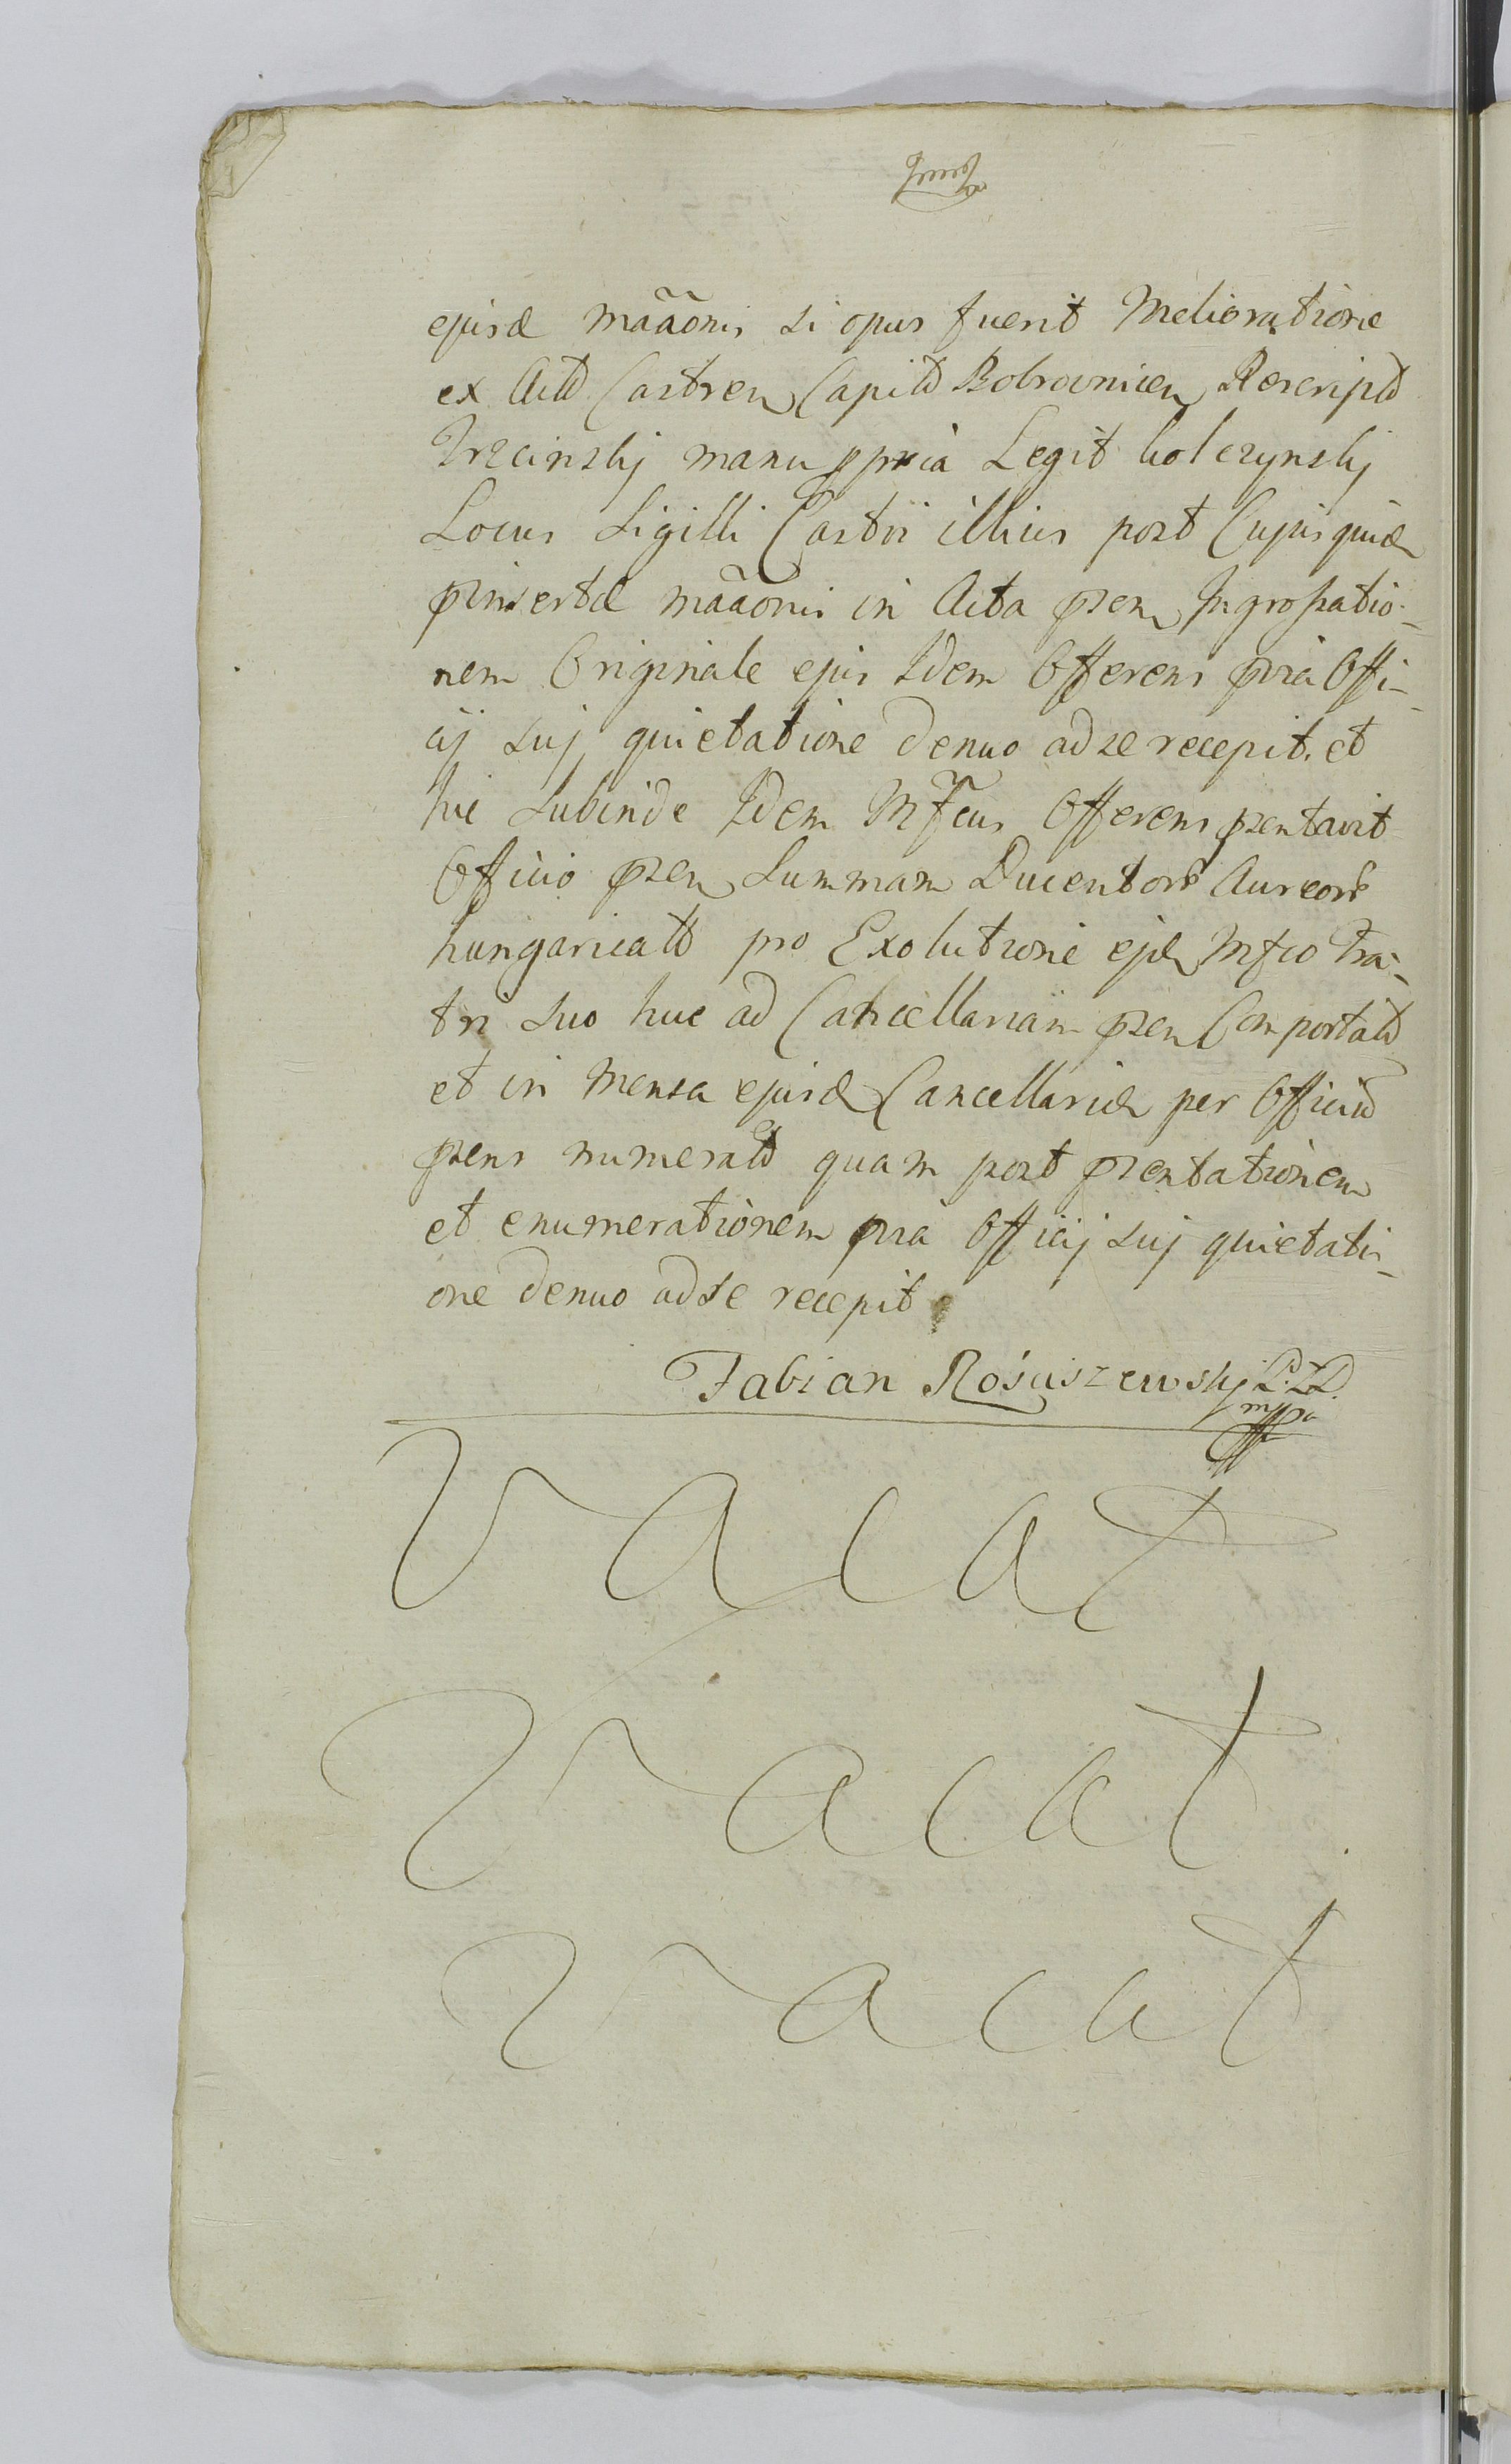 ejusd maãonis si opus fuerit Melioratione
ex Actis Castren Capit Bobrovnicen Rescript
Trzcinskj manu ppria Legit Kolczynskj
Locus Sigilli Castri illius post Cujusquid
pinsertæ maãonis in Acta psen Ingrossatio-
nem Originale ejus Idem Offerens pria Offi-
cij sui quietatione denuo ad se recepit. et
hic Subinde Idem Mfcus Offerens psentavit
Officio psen Summam Ducentor Aureor
hungarical pro Exolutione ejd Mfco Fra-
tri suo huc ad Cancellariam psen Comportat
et in Mensa ejusd Cancellaria per Officiu
psens numerat quam post psentationem
et enumerationem pria Officij sui quietati-
one denuo ad se recepit
Fabian Rościszewskj
mppa
Vacat
Vacat
Vacat